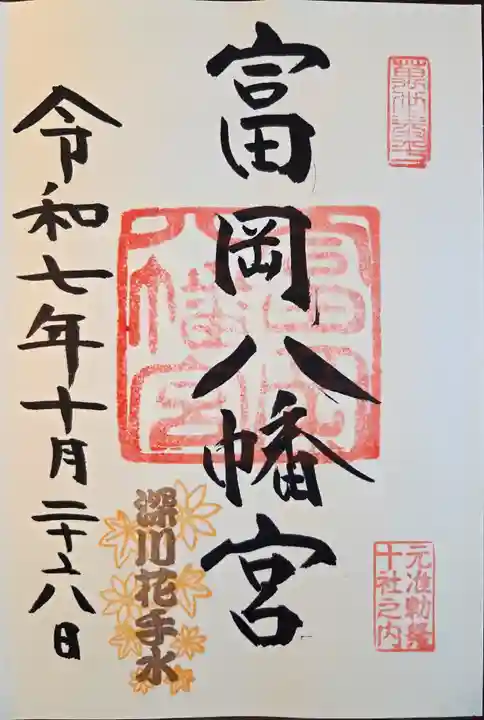 元准勅祭
十社之内
富岡八幡宮
富岡
八幡宮
深川花手水
令和七年十月二十八日